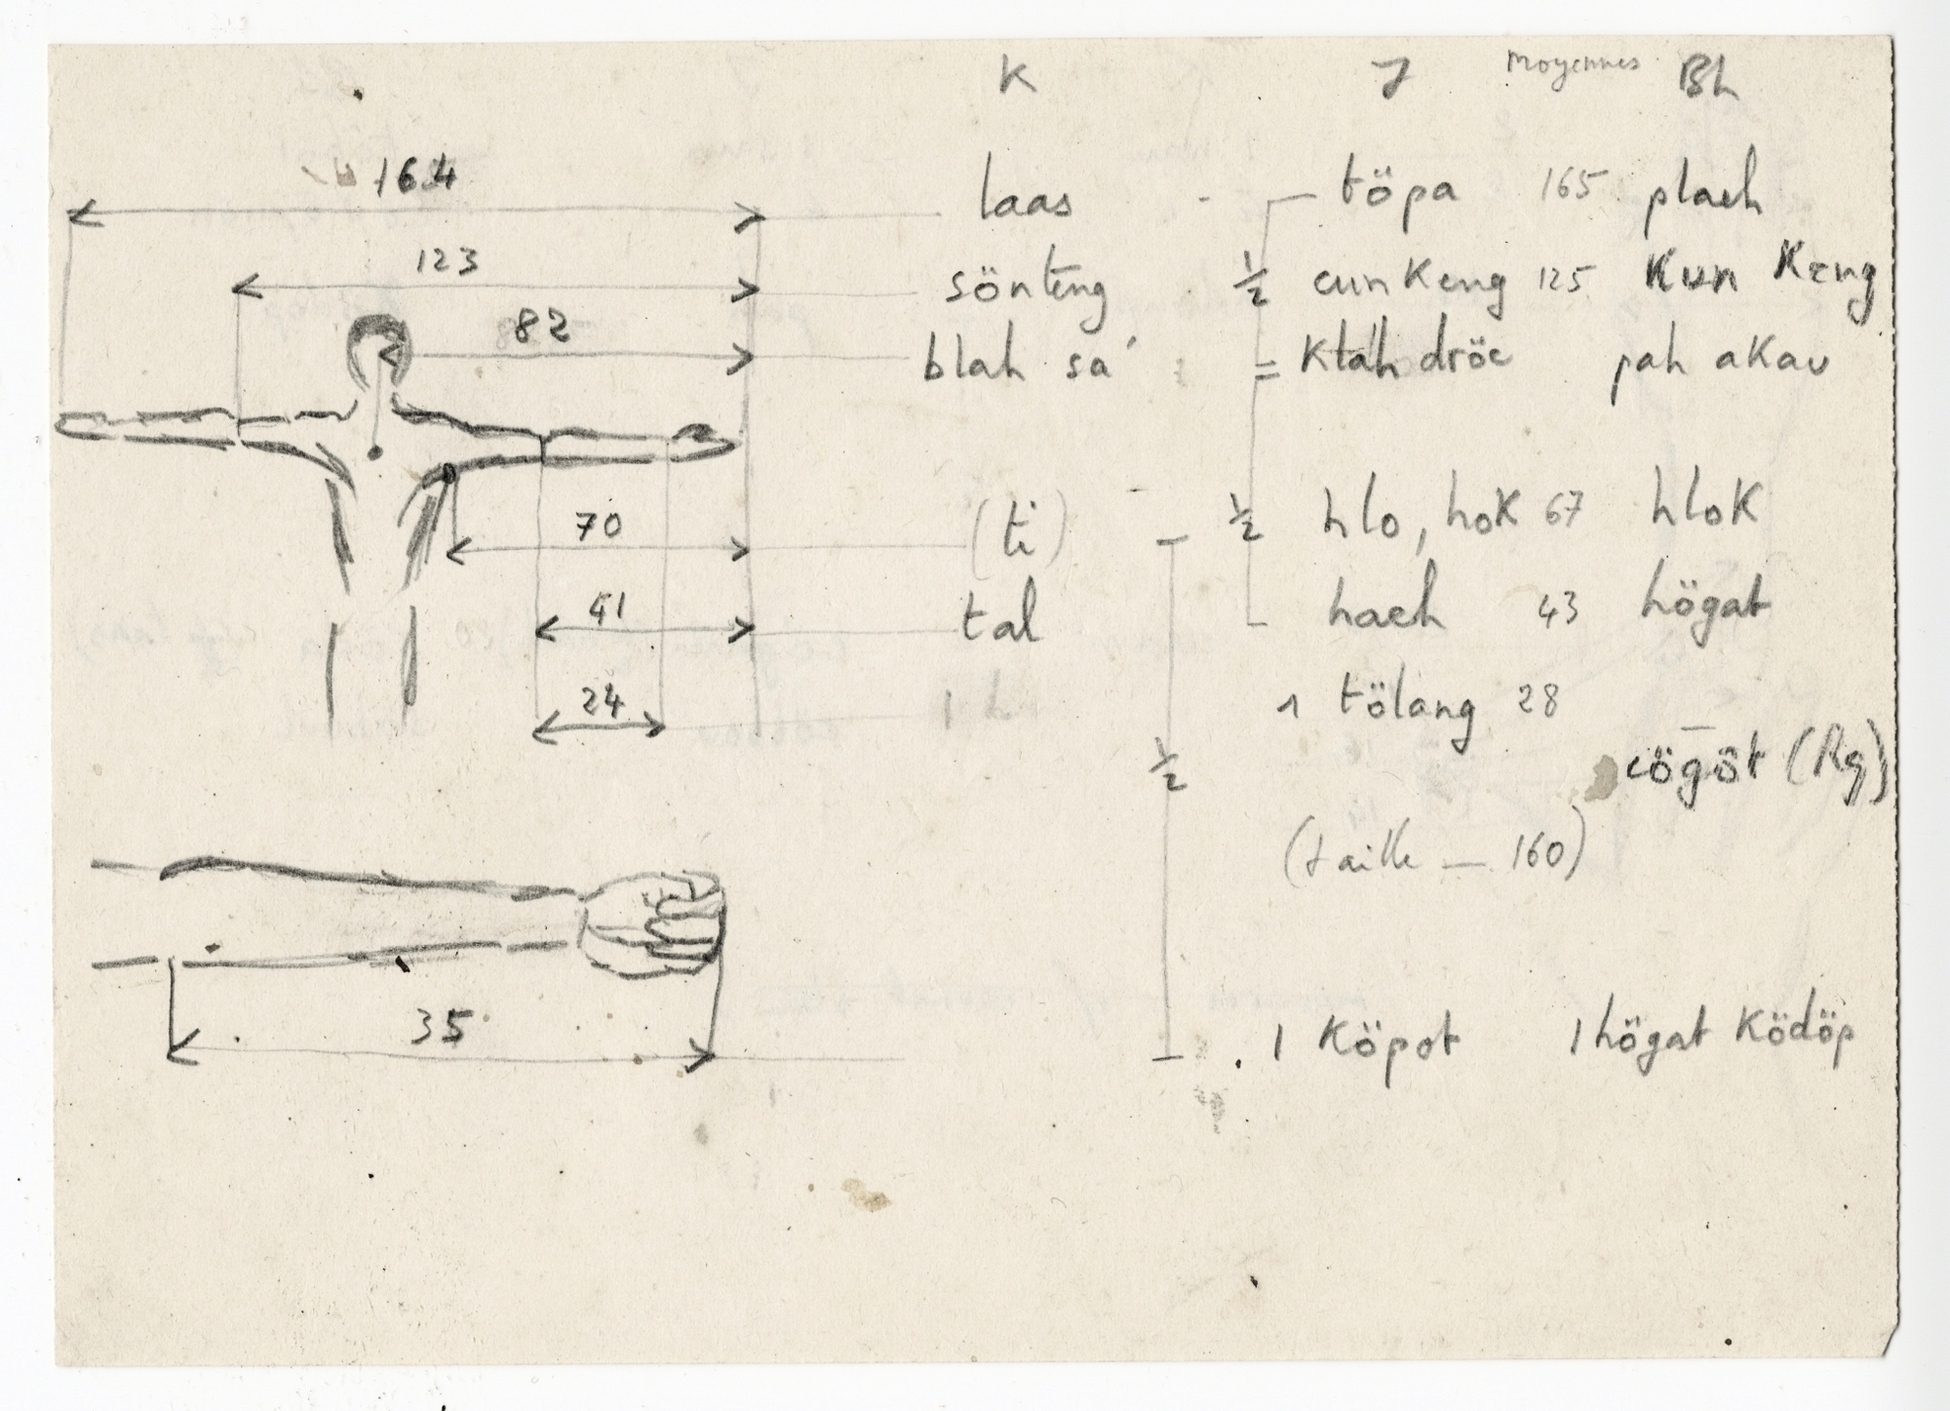 K J Moyennes Bh
164 laas töpa 165 plaeh
123 sönteng ½ cunkeng 125 Kun Keng
82 blah sa' = Ktah dröe pah akau
70 (ti) ½ hlo, hok 67 hlok
41 tal haeh 43 högat
24 1 tölang 28
½ cögöt (Rg)
(taille — 160)
35 1 Köpot 1 högat Ködöp